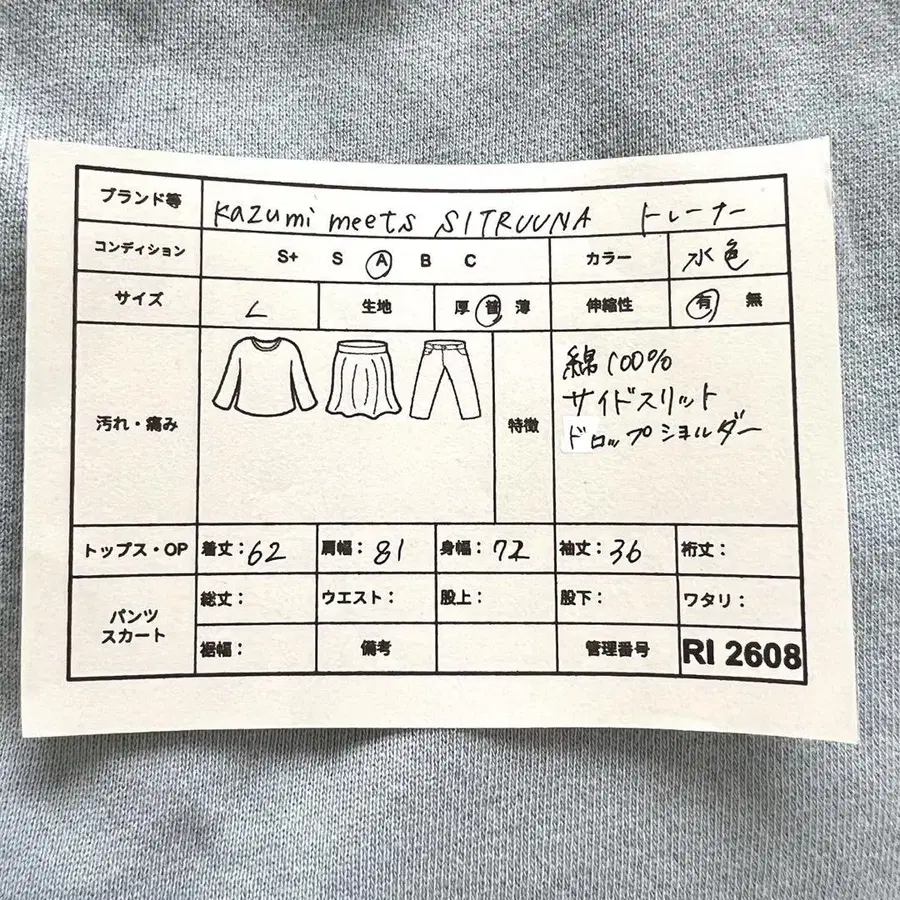 ブランド等 Kazumi meets SITRUUNA トレーナー
コンディション S+ S A B C カラー 水色
サイズ L 生地 厚 普 薄 伸縮性 有 無
汚れ・痛み 特徴 綿100%
サイドスリット
ドロップショルダー
トップス・OP 着丈:62 肩幅:81 身幅:72 袖丈:36 裄丈:
パンツ スカート 総丈: ウエスト: 股上: 股下: ワタリ:
裾幅: 備考 管理番号 RI 2608